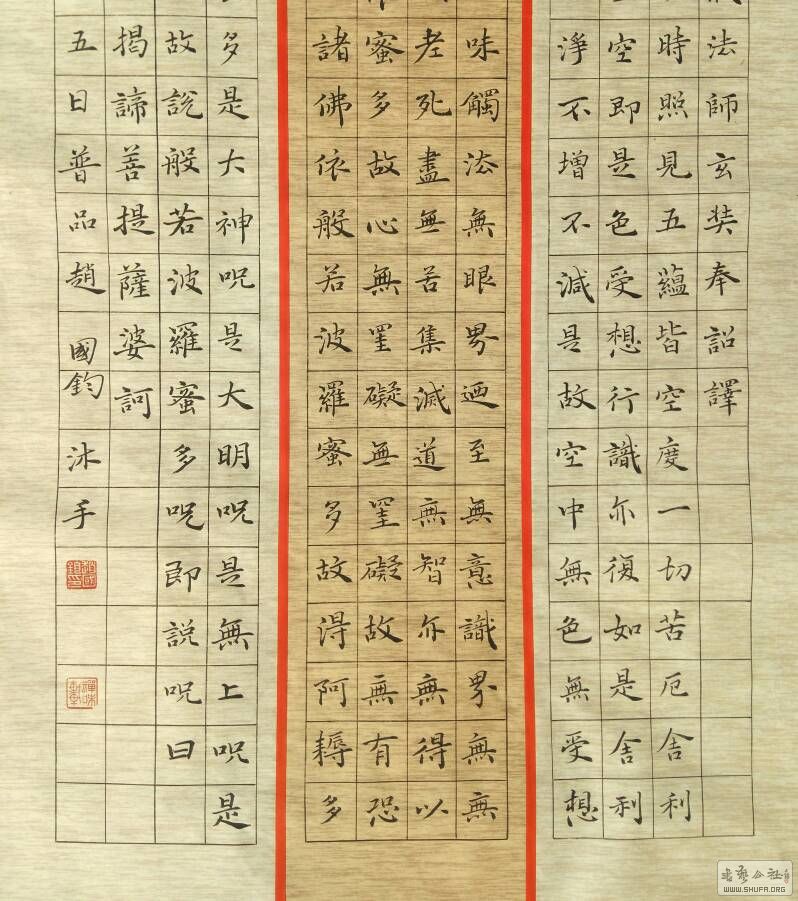 法師玄奘奉詔譯
時照見五蘊皆空度一切苦厄舍利
空即是色受想行識亦復如是舍利
淨不增不減是故空中無色無受想
味觸法無眼界迺至無意識界無無
老死盡無苦集滅道無智亦無得以
蜜多故心無罣礙無罣礙故無有恐
諸佛依般若波羅蜜多故得阿耨多
多是大神呪是大明呪是無上呪是
故說般若波羅蜜多呪即説呪曰
揭諦善提薩婆訶
五日普品趙國鈞沐手
WWW.SHUFA.ORG